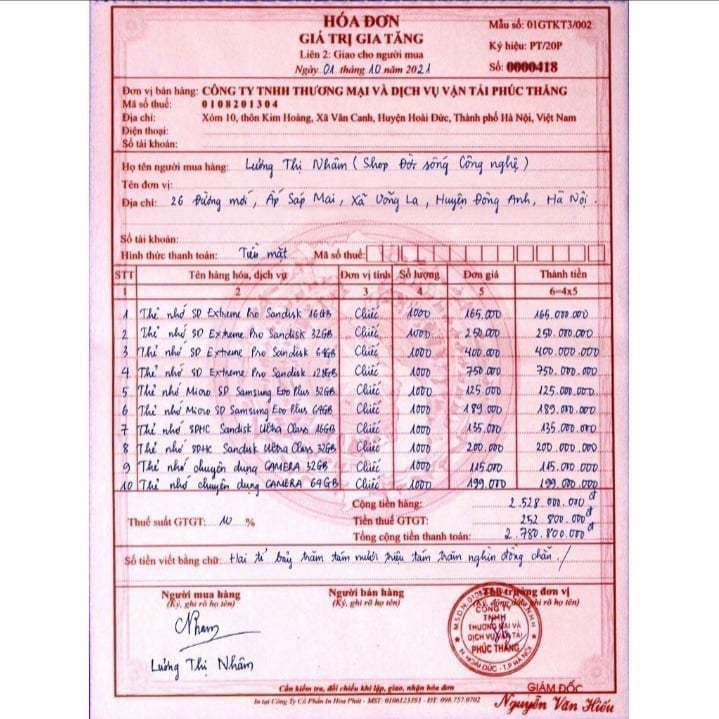 HÓA ĐƠN
GIÁ TRỊ GIA TĂNG
Liên 2: Giao cho người mua
Ngày 01 tháng 10 năm 2021
Mẫu số: 01GTKT3/002
Ký hiệu: PT/20P
Số: 0000418
Đơn vị bán hàng: CÔNG TY TNHH THƯƠNG MẠI VÀ DỊCH VỤ VẬN TẢI PHÚC THẮNG
Mã số thuế: 0108201304
Địa chỉ: Xóm 10, thôn Kim Hoàng, Xã Vân Canh, Huyện Hoài Đức, Thành phố Hà Nội, Việt Nam
Điện thoại:
Số tài khoản:
Họ tên người mua hàng: Lường Thị Nhâm (Shop Đời sống Công nghệ)
Tên đơn vị:
Địa chỉ: 26 Đường mới, Ấp Sáp Mai, Xã Võng La, Huyện Đông Anh, Hà Nội.
Số tài khoản:
Hình thức thanh toán: Tiền mặt Mã số thuế:
STT Tên hàng hóa, dịch vụ Đơn vị tính Số lượng Đơn giá Thành tiền
1 2 3 4 5 6=4x5
1 Thẻ nhớ SD Extreme Pro Sandisk 16GB Chiếc 1000 165.000 165.000.000
2 Thẻ nhớ SD Extreme Pro Sandisk 32GB Chiếc 1000 250.000 250.000.000
3 Thẻ nhớ SD Extreme Pro Sandisk 64GB Chiếc 1000 400.000 400.000.000
4 Thẻ nhớ SD Extreme Pro Sandisk 128GB Chiếc 1000 750.000 750.000.000
5 Thẻ nhớ Micro SD Samsung Evo Plus 32GB Chiếc 1000 125.000 125.000.000
6 Thẻ nhớ Micro SD Samsung Evo Plus 64GB Chiếc 1000 189.000 189.000.000
7 Thẻ nhớ SDHC Sandisk Ultra Class 16GB Chiếc 1000 135.000 135.000.000
8 Thẻ nhớ SDHC Sandisk Ultra Class 32GB Chiếc 1000 200.000 200.000.000
9 Thẻ nhớ chuyên dụng CAMERA 32GB Chiếc 1000 115.000 115.000.000
10 Thẻ nhớ chuyên dụng CAMERA 64GB Chiếc 1000 199.000 199.000.000
Cộng tiền hàng: 2.528.000.000đ
Thuế suất GTGT: 10 % Tiền thuế GTGT: 252.800.000đ
Tổng cộng tiền thanh toán: 2.780.800.000đ
Số tiền viết bằng chữ: Hai tỉ bảy trăm tám mươi triệu tám trăm nghìn đồng chẵn./
Người mua hàng Người bán hàng Thủ trưởng đơn vị
(Ký, ghi rõ họ tên) (Ký, ghi rõ họ tên) (Ký, đóng dấu, ghi rõ họ tên)
Nhâm
Lường Thị Nhâm
CÔNG TY
TNHH
THƯƠNG MẠI VÀ
DỊCH VỤ VẬN TẢI
PHÚC THẮNG
H. HOÀI ĐỨC - T.P HÀ NỘI
GIÁM ĐỐC
Nguyễn Văn Hiếu
Cần kiểm tra, đối chiếu khi lập, giao, nhận hóa đơn
In tại Công Ty Cổ Phần In Hòa Phát - MST: 0106123393 - ĐT: 098.757.0702